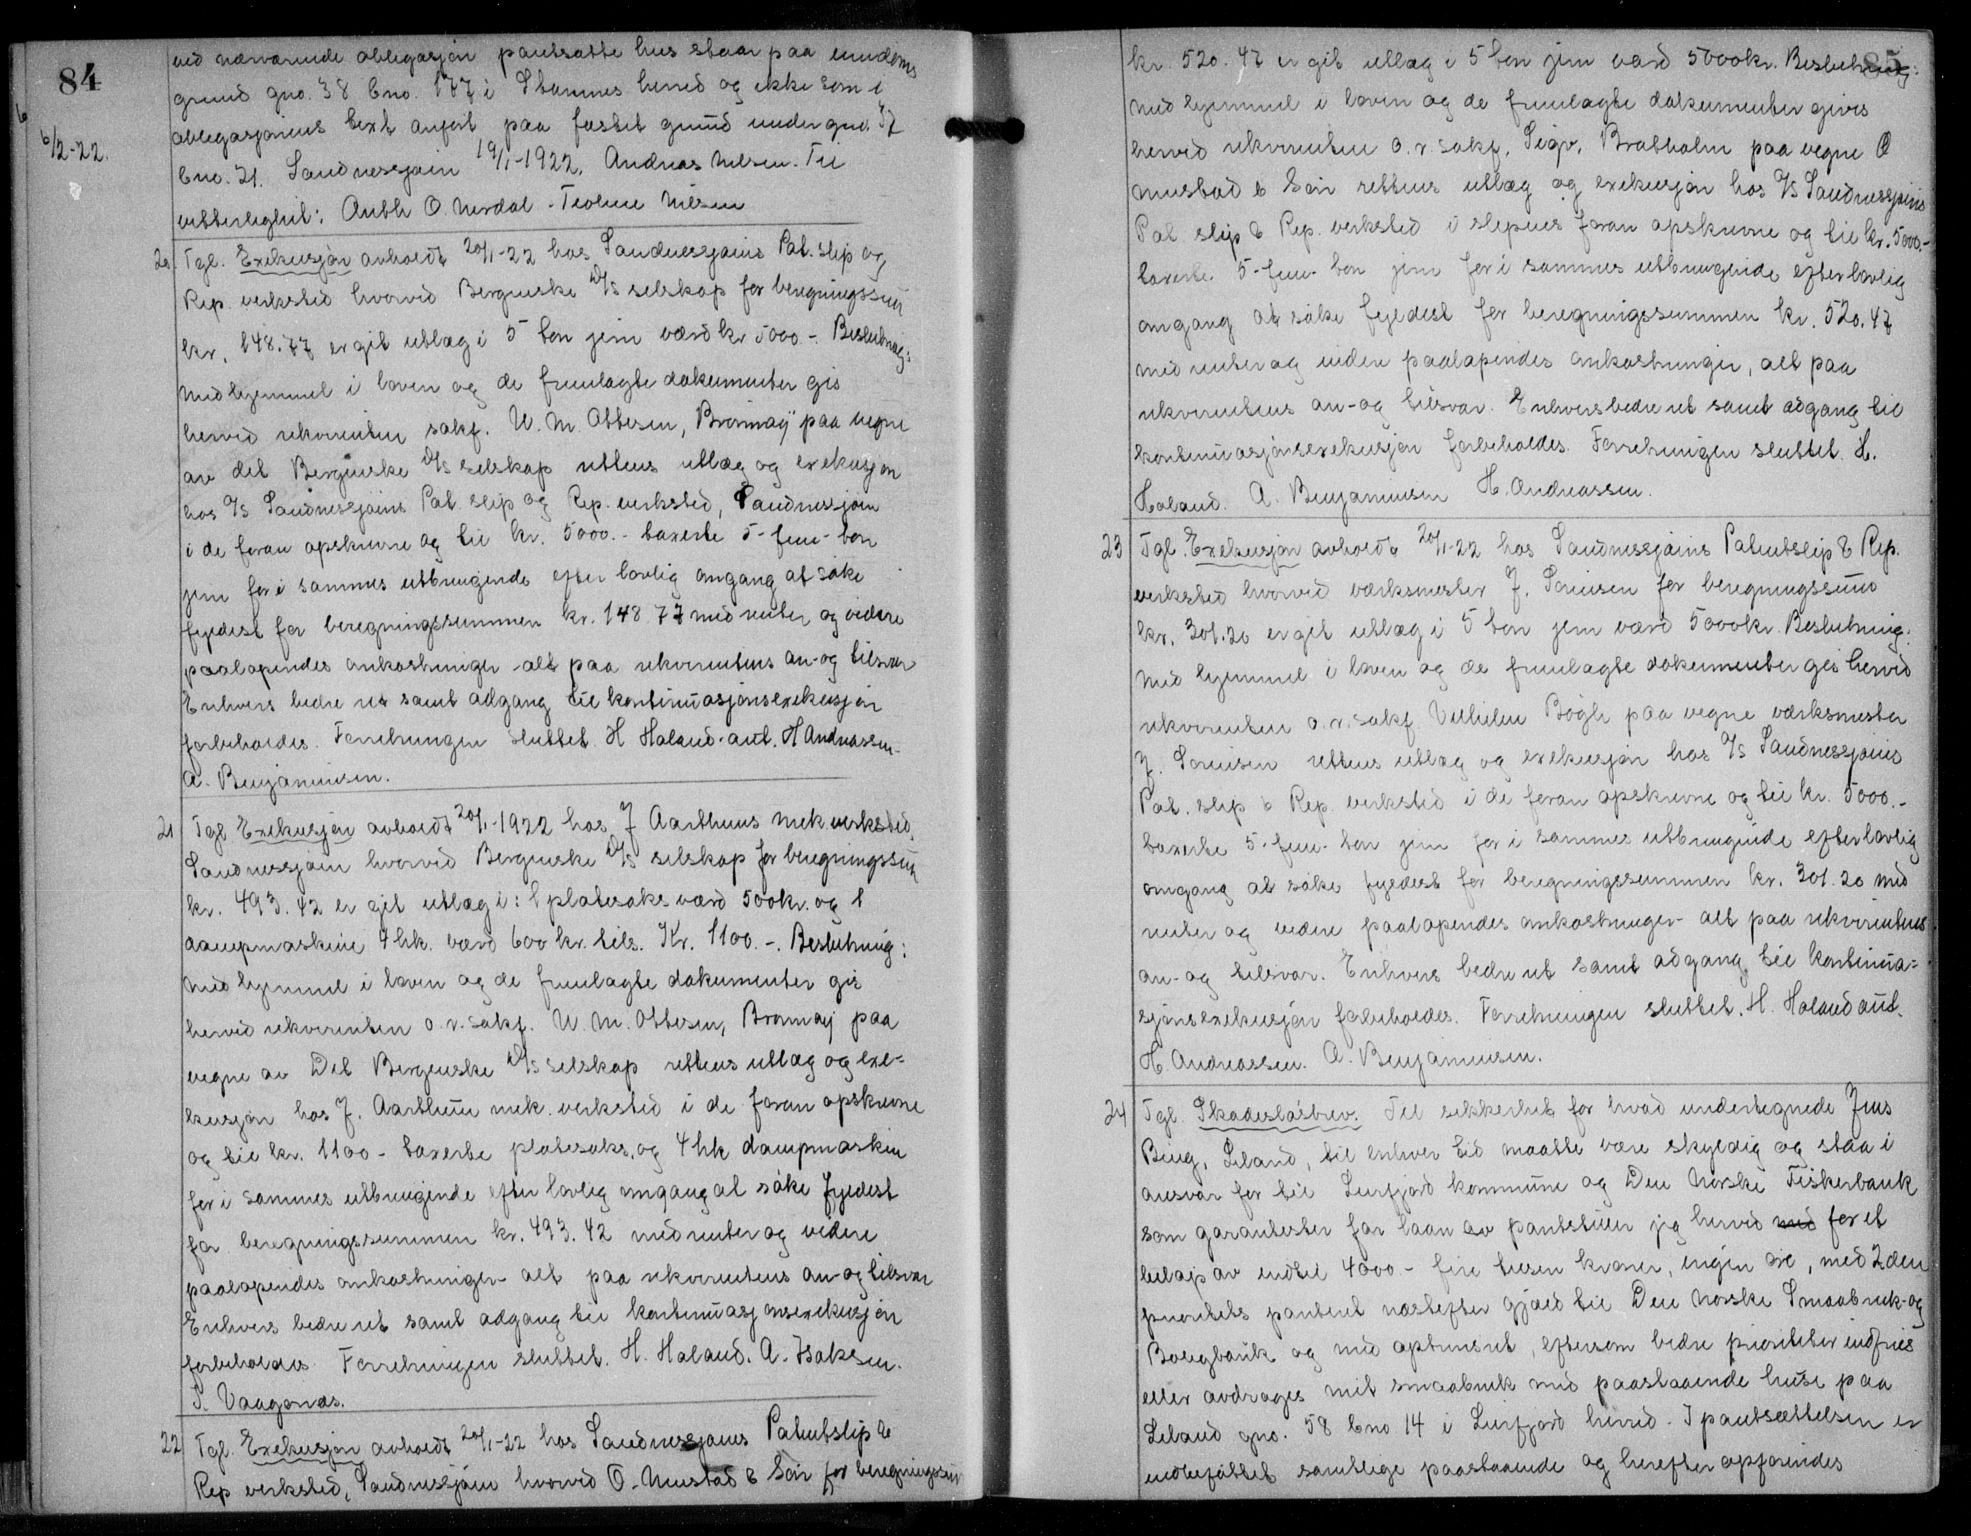 84
6/2-22.
ved nærværende obligasjon pantsatte hus staar paa eiendoms
grund gno. 38 bno. 177 i Stamnes herred og ikke som i
obligasjonens text anført paa festet grund under gno. 37
bno. 21. Sandnessjøen 19/1-1922. Andreas Nilsen. Til
vitterlighet: Anth O. Nerdal - Teoline Nilsen
20. Tgl. Exekusjon avholdt 20/1-22 hos Sandnessjøens Pat. slip og
Rep. verksted hvorved Bergenske D/S selskap for beregningssum
kr. 148.77 er git utlæg i 5 ton jern værd kr 5000.- Beslutning:
Med hjemmel i loven og de fremlagte dokumenter gis
herved rekvirenten sakf. W. M. Ottesen, Brønnøy paa vegne
av det Bergenske D/S selskap rettens utlæg og exekusjon
hos A/S Sandnessjøens Pat. slip og Rep. verksted, Sandnessjøen
i de foran opskrevne og til kr. 5000.- taxerte 5-fem-ton
jern for i sammes utbringende efter lovlig omgang at søke
fyldest for beregningssummen kr. 148.77 med renter og videre
paaløpendes omkostninger - alt paa rekvirentens an- og tilsvar
Enhvers bedre ret samt adgang til kontinuasjonsexekusjon
forbeholdes. Forretningen sluttet. H Holand. aut. H Andreassen.
A. Benjaminsen.
21 Tgl Exekusjon avholdt 20/1-1922 hos J Aarthuns mek. verksted,
Sandnessjøen hvorved Bergenske D/S selskap for beregningssum
kr. 493.42 er git utlæg i: 1 platesaks værd 500 kr. og 1
dampmaskine 4 hk. værd 600 kr. tils. Kr. 1100.-. Beslutning:
Med hjemmel i loven og de fremlagte dokumenter gis
herved rekvirenten o.r.sakf. W. M. Ottesen, Brønnøy paa
vegne av Det Bergenske D/S selskap rettens utlæg og exe=
kusjon hos J. Aarthuns mek. verksted i de foran opskrevne
og til kr. 1100 - taxerte platesaks, og 4 hk dampmaskin
for i sammes utbringende efter lovlig omgang at søke fyldest
for beregningssummen kr. 493.42 med renter og videre
paaløpendes omkostninger - alt paa rekvirentens an- og tilsvar
Enhvers bedre ret samt adgang til kontinuasjonsexekusjon
forbeholdes. Forretningen sluttet. H. Holand. A. Isaksen.
P. Vaagenæs.
22 Tgl. Exekusjon avholdt 20/1-22 hos Sandnessjøens Patentslip &
Rep verksted, Sandnessjøen hvorved O. Mustad & Søn for beregningssum
85
kr. 520.47 er git utlæg i 5 ton jern værd 5000 kr. Beslutning:
Med hjemmel i loven og de fremlagte dokumenter gives
herved rekvirenten o.r.sakf. Sigv. Bratholm paa vegne O
Mustad & Søn rettens utlæg og exekusjon hos A/S Sandnessjøens
Pat slip & Rep. verksted i slipens foran opskrevne og til kr. 5000.-
taxerte 5-fem- ton jern for i sammes utbringende efter lovlig
omgang at søke fyldest for beregningssummen kr. 520.47
med renter og videre paaløpendes omkostninger, alt paa
rekvirentens an- og tilsvar. Enhvers bedre ret samt adgang til
kontinuasjonsexekusjon forbeholdes. Forretningen sluttet. H.
Holand. A. Benjaminsen H. Andreassen.
23 Tgl. Exekusjon avholdt 20/1-22 hos Sandnessjøens Patentslip & Rep.
verksted hvorved værksmester J. Sørensen for beregningssum
kr. 301.20 er git utlæg i 5 ton jern værd 5000 kr. Beslutning:
Med hjemmel i loven og de fremlagte dokumenter gis herved
rekvirenten o.r.sakf. Vilhelm Bøgh paa vegne værksmester
J. Sørensen rettens utlæg og exekusjon hos A/S Sandnessjøens
Pat. slip & Rep. verksted i de foran opskrevne og til kr. 5000.-
taxerte 5-fem- ton jern for i sammes utbringende efter lovlig
omgang at søke fyldest for beregningssummen kr. 301.20 med
renter og videre paaløpendes omkostninger - alt paa rekvirentens
an- og tilsvar. Enhvers bedre ret samt adgang til kontinua=
sjonsexekusjon forbeholdes. Forretningen sluttet. H. Holand aut.
H. Andreassen. A. Benjaminsen.
24 Tgl. Skadesløsbrev. Til sikkerhet for hvad undertegnede Jens
Bing, Leland, til enhver tid maatte være skyldig og staa i
ansvar for til Leirfjord kommune og Den Norske Fiskerbank
som garantister for laan av pantstiller jeg herved med for et
beløp av indtil 4000.- fire tusen kroner, ingen øre, med 2den
prioritets panteret næstefter gjæld til Den Norske Smaabruk- og
Boligbank og med optrinsret, eftersom bedre prioriteter indfries
eller avdrages mit smaabruk med paastaaende huse paa
Leland gno. 58 bno 14 i Leirfjord herred. I pantsættelsen er
indbefattet samtlige paastaaende og herefter opførendes